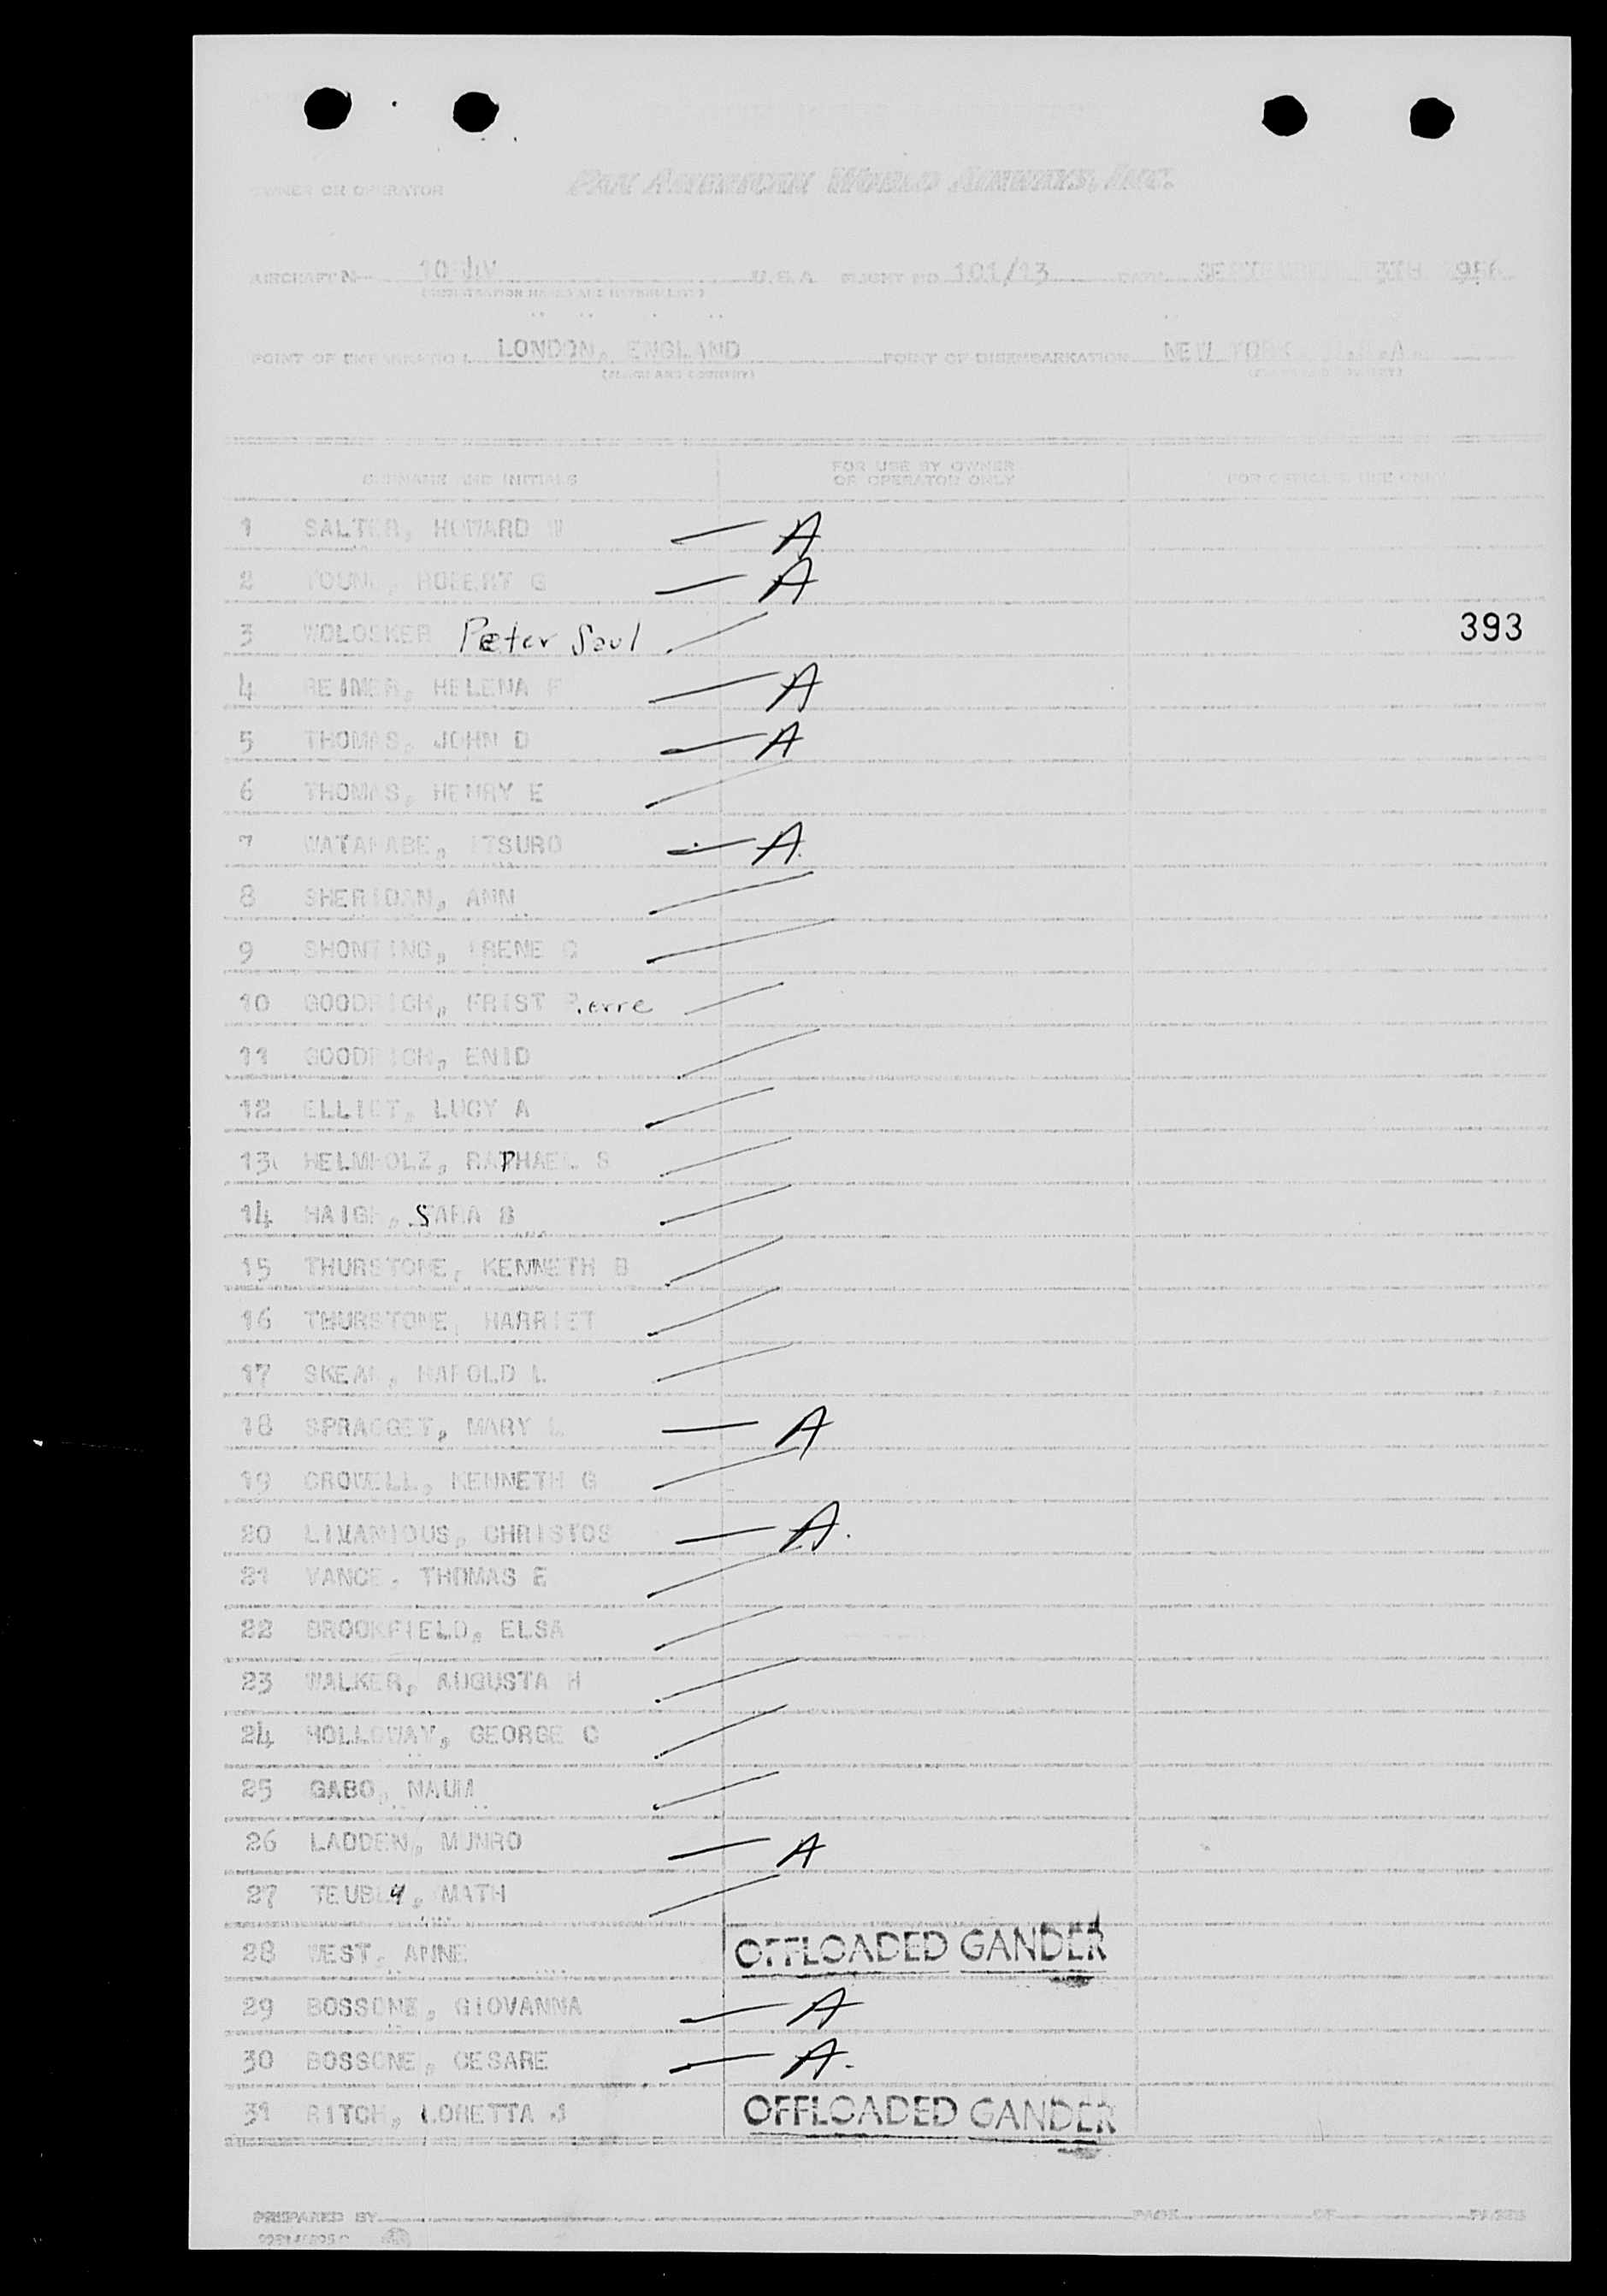 OWNER OR OPERATOR PAN AMERICAN WORLD AIRWAYS, INC.
AIRCRAFT U.S.A. FLIGHT NO 101/13 DATE SEPTEMBER
LONDON, ENGLAND POINT OF DISEMBARKATION NEW YORK
(PLACE AND COUNTRY)
SURNAME AND INITIALS FOR USE BY OWNER OR OPERATOR ONLY FOR OFFICIAL USE ONLY
1 SALTER, HOWARD W — A
2 YOUNG, ROBERT G — A
3 WOLOSKER Peter Saul 393
4 REIMER, HELENA — A
5 THOMAS, JOHN D — A
6 THOMAS, HENRY E
7 WATANABE, ITSURO — A.
8 SHERIDAN, ANN
9 SHONTING, IRENE
10 GOODRICH, FRIST Pierre
11 GOODRICH, ENID
12 ELLIOT, LUCY A
13 HELMHOLZ, RAPHAEL S
14 HAIGH, SARA B
15 THURSTONE, KENNETH B
16 THURSTONE, HARRIET
17 HAROLD L
18 MARY — A
19 CROWELL, KENNETH G
20 CHRISTOS — A.
21 VANCE, THOMAS E
22 BROOKFIELD, ELSA
23 WALKER, AUGUSTA H
24 HOLLOWAY, GEORGE C
25 GABO, NAUM
26 LADDEN, MUNRO — A
27 MATH
28 WEST, ANNE OFFLOADED GANDER
29 BOSSONE, GIOVANNA — A
30 BOSSONE, CESARE — A.
31 RITCH, LORETTA J OFFLOADED GANDER
PREPARED BY PAGE OF PAGES